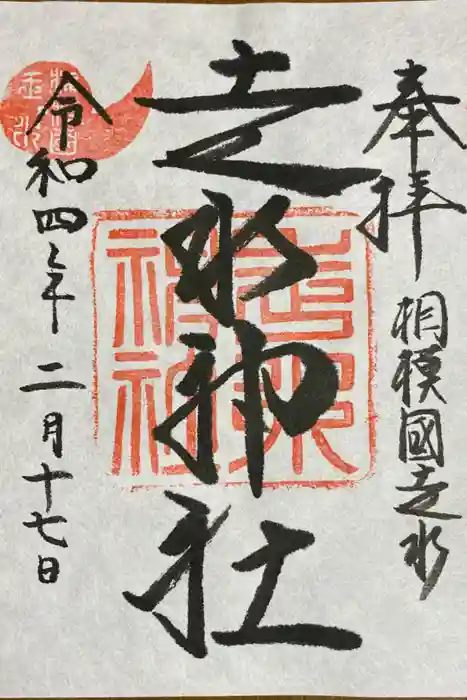 奉拝
相模國走水
走水神社
令和四年二月十七日
走水神社